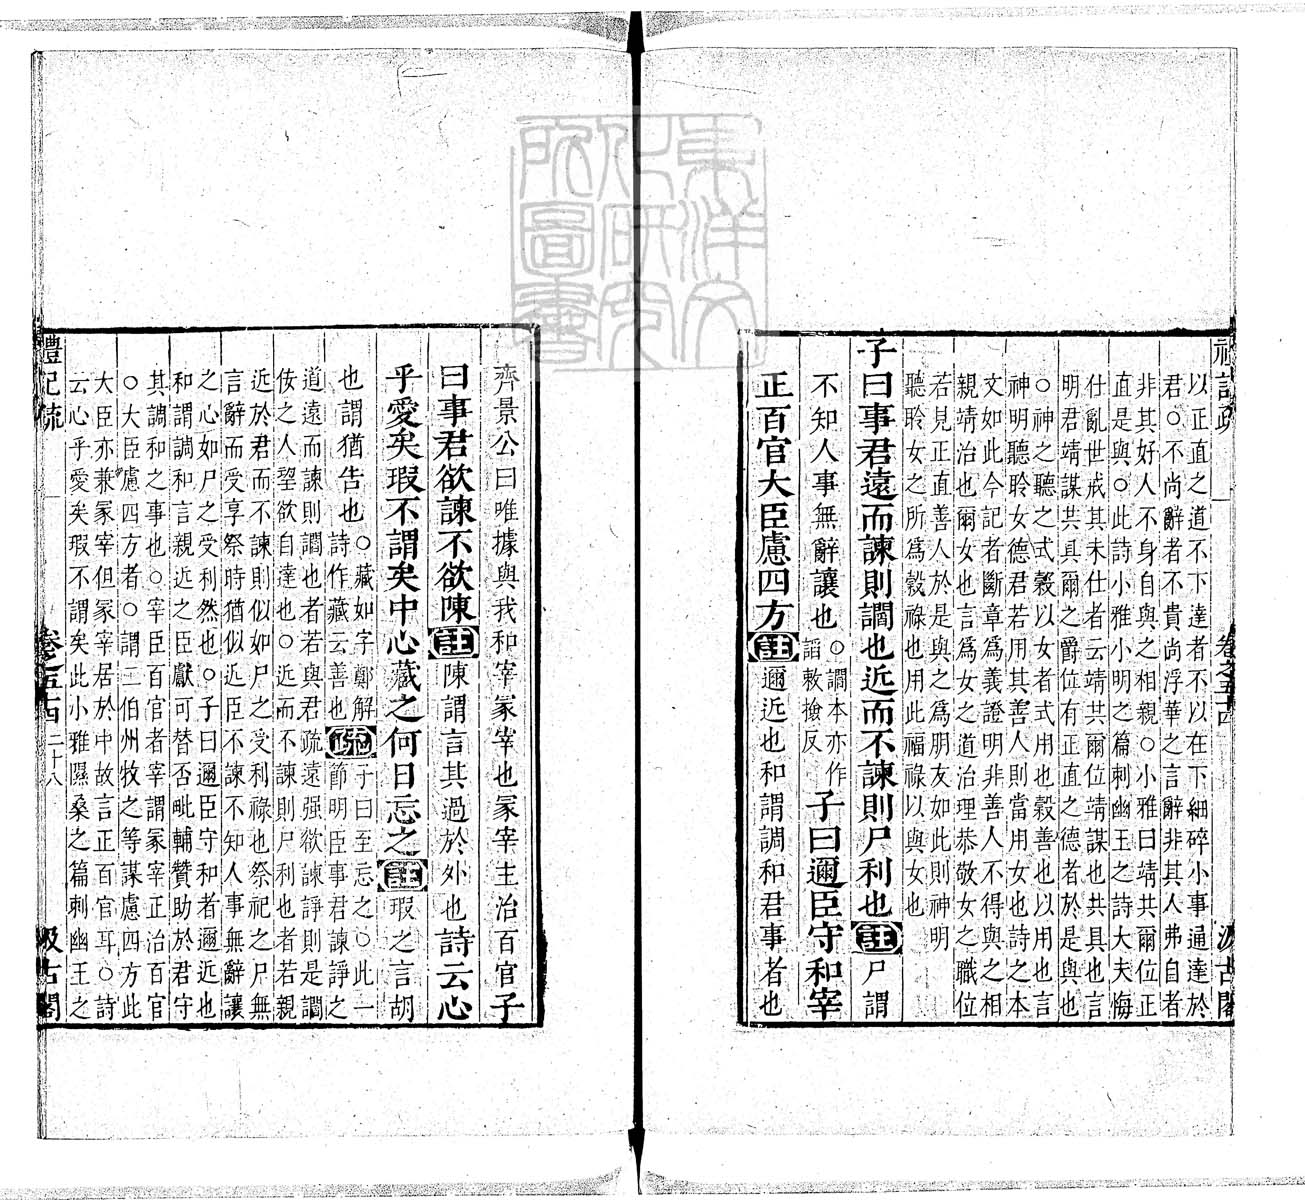 禮記疏 卷之五十四 汲古閣
以正直之道不下達者不以在下細碎小事通達於
君○不尚辭者不貴尚浮華之言辭非其人弗自者
非其好人不身自與之相親○小雅曰靖共爾位正
直是與○此詩小雅小明之篇刺幽王之詩大夫悔
仕亂世戒其未仕者云靖共爾位靖謀也共具也言
明君靖謀共具爾之爵位有正直之德者於是與也
○神之聽之式穀以女者式用也穀善也以用也言
神明聽聆女德君若用其善人則當用女也詩之本
文如此今記者斷章爲義證明非善人不得與之相
親靖治也爾女也言爲女之道治理恭敬女之職位
若見正直善人於是與之爲朋友如此則神明
聽聆女之所爲穀祿也用此福祿以與女也
子曰事君遠而諫則讇也近而不諫則尸利也註尸謂
不知人事無辭讓也○讇本亦作謟敕撿反子曰邇臣守和宰
正百官大臣慮四方註邇近也和謂調和君事者也
齊景公曰唯據與我和宰冢宰也冢宰主治百官子
曰事君欲諫不欲陳註陳謂言其過於外也詩云心
乎愛矣瑕不謂矣中心藏之何日忘之註瑕之言胡
也謂猶告也○藏如字鄭解詩作藏云善也疏子曰至忘之○此一節明臣事君諫諍之
道遠而諫則讇也者若與君疏遠强欲諫諍則是讇
佞之人望欲自達也○近而不諫則尸利也者若親
近於君而不諫則似如尸之受利祿也祭祀之尸無
言辭而受享祭時猶似近臣不諫不知人事無辭讓
之心如尸之受利然也○子曰邇臣守和者邇近也
和謂調和言親近之臣獻可替否毗輔贊助於君守
其調和之事也○宰臣百官者宰謂冢宰正治百官
○大臣慮四方者○謂二伯州牧之等謀慮四方此
大臣亦兼冢宰但冢宰居於中故言正百官耳○詩
云心乎愛矣瑕不謂矣此小雅隰桑之篇刺幽王之
禮記疏 卷之五十四 二十八 汲古閣
東洋文化研究所圖書